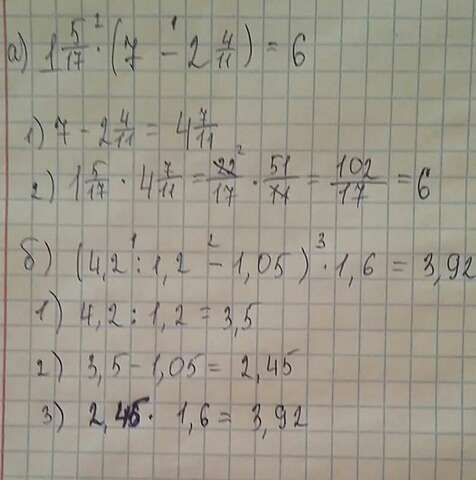 а) 1 5/17 · (7 - 2 4/11) = 6
1) 7 - 2 4/11 = 4 7/11
2) 1 5/17 · 4 7/11 = 22/17 · 51/11 = 102/17 = 6
б) (4,2 : 1,2 - 1,05) · 1,6 = 3,92
1) 4,2 : 1,2 = 3,5
2) 3,5 - 1,05 = 2,45
3) 2,45 · 1,6 = 3,92